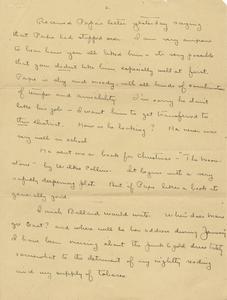 2.
Received Papa's letter yesterday saying
that Papa had stopped over. I am very anxious
to hear how you all liked him - its very possible
that you didnt like him especially well at first.
Papa is shy and moody with all kinds of
of temper and amiability. I'm sorry he didnt
like his job - I want him to get transferred to
this district. How is he looking? He never was
very well in school.
Ma sent me a book for Christmas - The Moon
stone - by Wilkie Collins. It begins with a very
rapidly deepening plot. But if Papa likes a book its
generally good.
I wish Ballard would write. When does
go East? and where will be her address during January
I have been musing about the
somewhat to the detriment of my nightly reading
and my supply of tobacco.